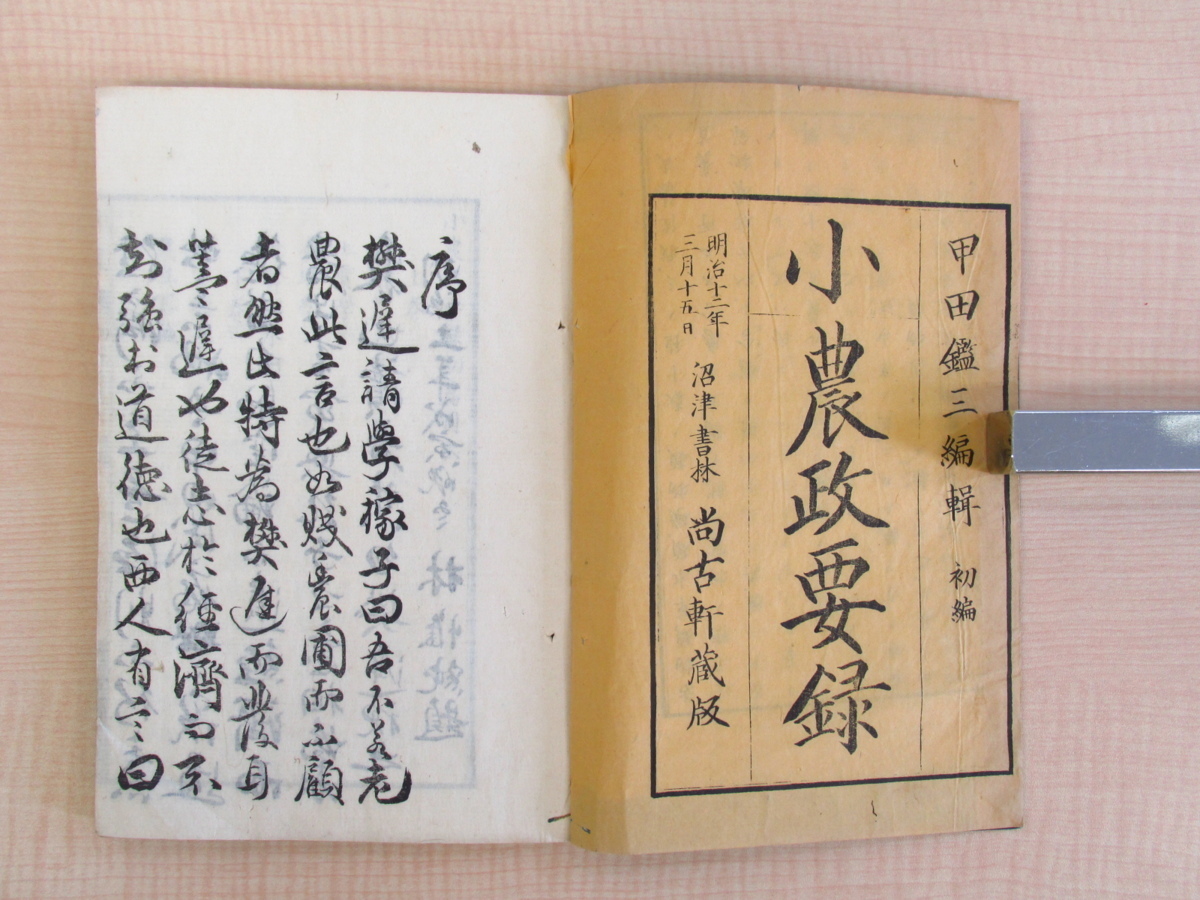 甲田鑑三編輯 初編
小農政要録
明治十二年
三月十五日
沼津書林 尚古軒蔵版
序
樊遅請學稼子曰吾不若老
農此言也如賤農圃而不顧
者然此特為樊遅而發耳
蓋遅也徒志於經濟而不
志強於道德也西人有言曰